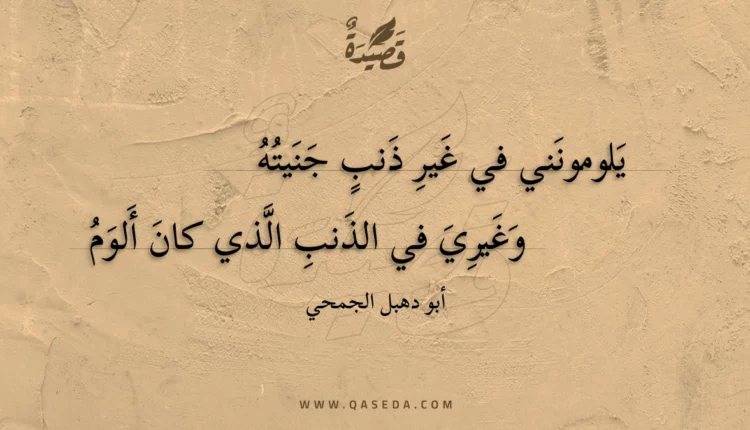 قَصِيدَةٌ
يَلومونَني في غَيرِ ذَنبٍ جَنَيتُهُ
وَغَيرِيَ في الذَنبِ الَّذي كانَ أَلوَمُ
أبو دهبل الجمحي
WWW.QASEDA.COM